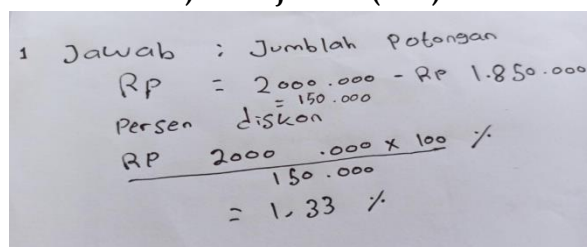 1 Jawab : Jumblah Potongan
RP = 2000.000 - RP 1.850.000
= 150.000
Persen diskon
RP 2000 .000 x 100 %
150.000
= 1,33 %